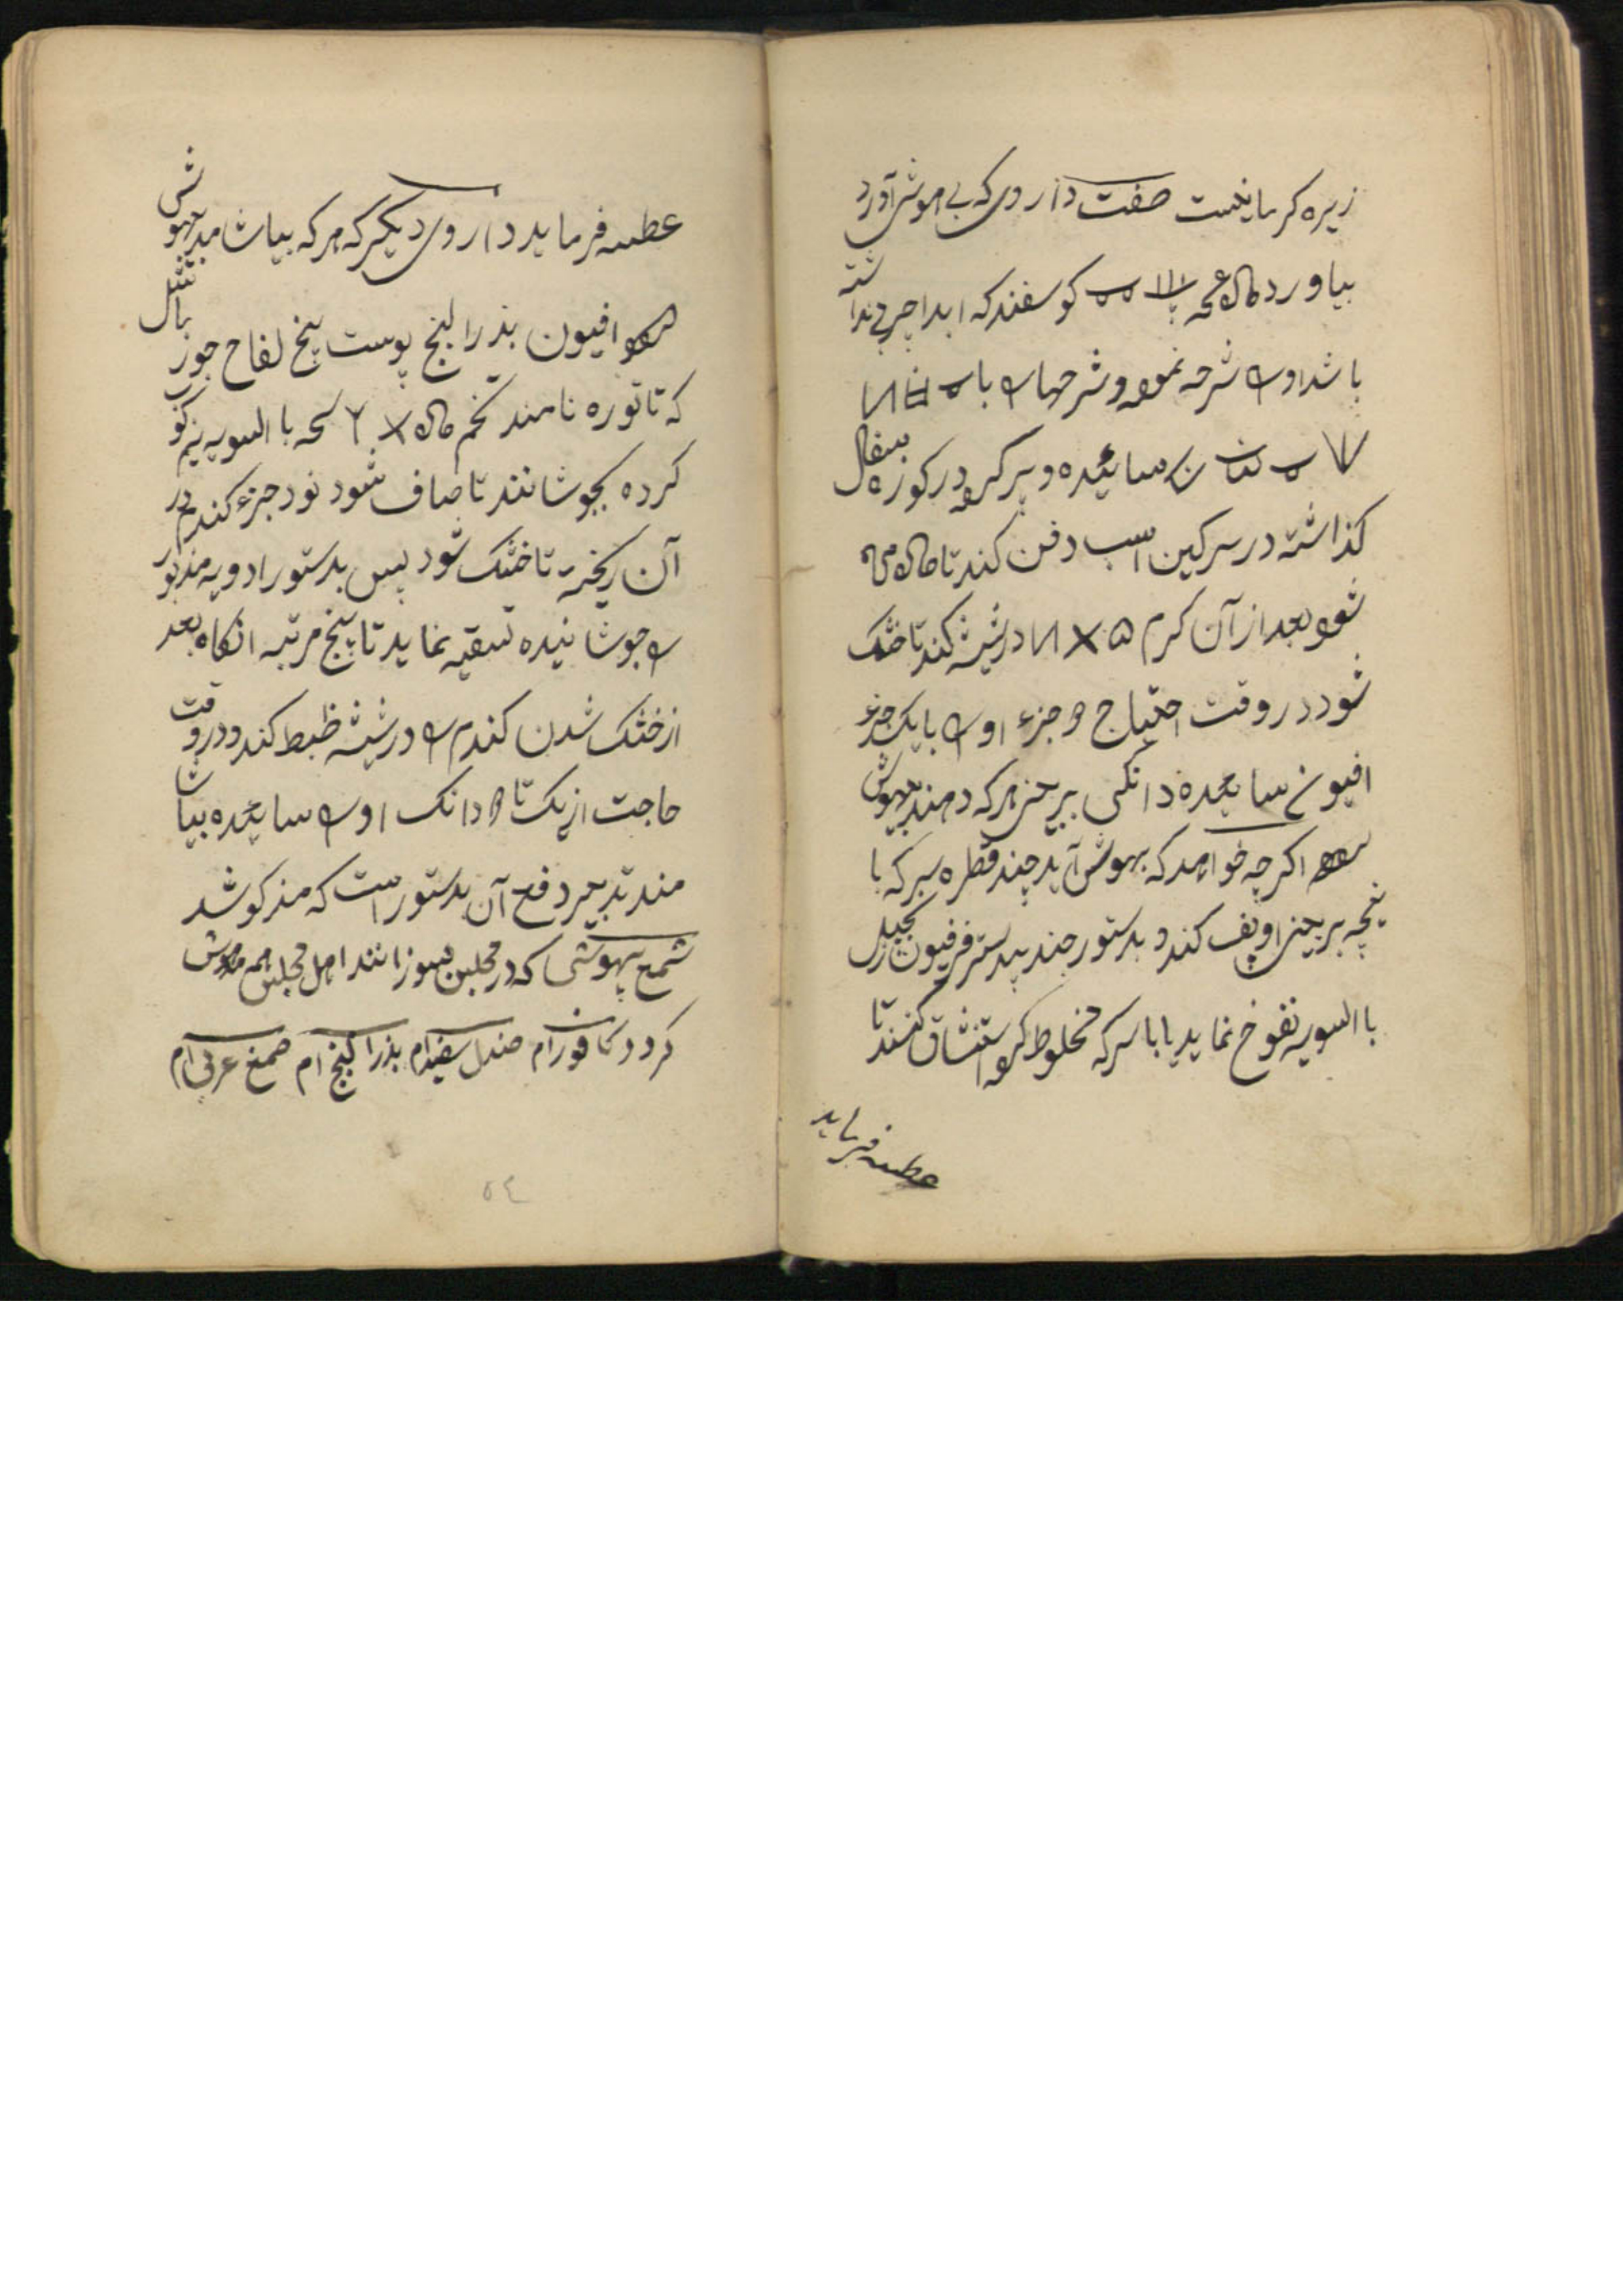 زیره کرمانیست صفت داروی که بی هوش آورد
بیاورد کوسفند که ابدا چربی نداشته
باشد او شرحه نموه و شرحهای با
سائیده و پر کرده در کوزه سفال
گذاشته در سرکین اسب دفن کند تا
شوه بعد از آن کرم در شیشه کند تا خشک
شود در وقت احتیاج جزء او با یک جزء
افیون سائیده دانکی بر بینی هر که دهند بیهوش
شوه اکرچه خواهد که بهوش آید چند قطره سرکه با
پنجه بر بینی او پف کند و بدستور جند بیدستر فرفیون زنجبیل
با السویه نفوخ نماید یا با سرکه مخلوط کرده استنشاق کنند تا
عطسه فرماید
عطسه فرماید داروی دیکر که هر که بیاشامد بیهوش
شوه افیون بذر البنج پوست بیخ لفاح جوز
که تاتوره نامند تخم با السویه نیم کوب
کرده بجوشانند تا صاف شود نود جزء کندم در
آن ریخته تا خشک شود پس بدستور ادویه مذبور
جوشانیده تسقیه نماید تا پنج مرتبه انکاه بعد
از خشک شدن کندم در شیشه ظبط کند و در وقت
حاجت از یک تا دانک او سائیده بیاشا
مند تدبیر دفع آن بدستور است که مذکو شد
شمع بیهوشی که در مجلس بسوزانند اهل مجلس همه مدهوش
کردد کافور ام صندل سفید ام بذر البنج ام صمغ عربی ام
٥٤